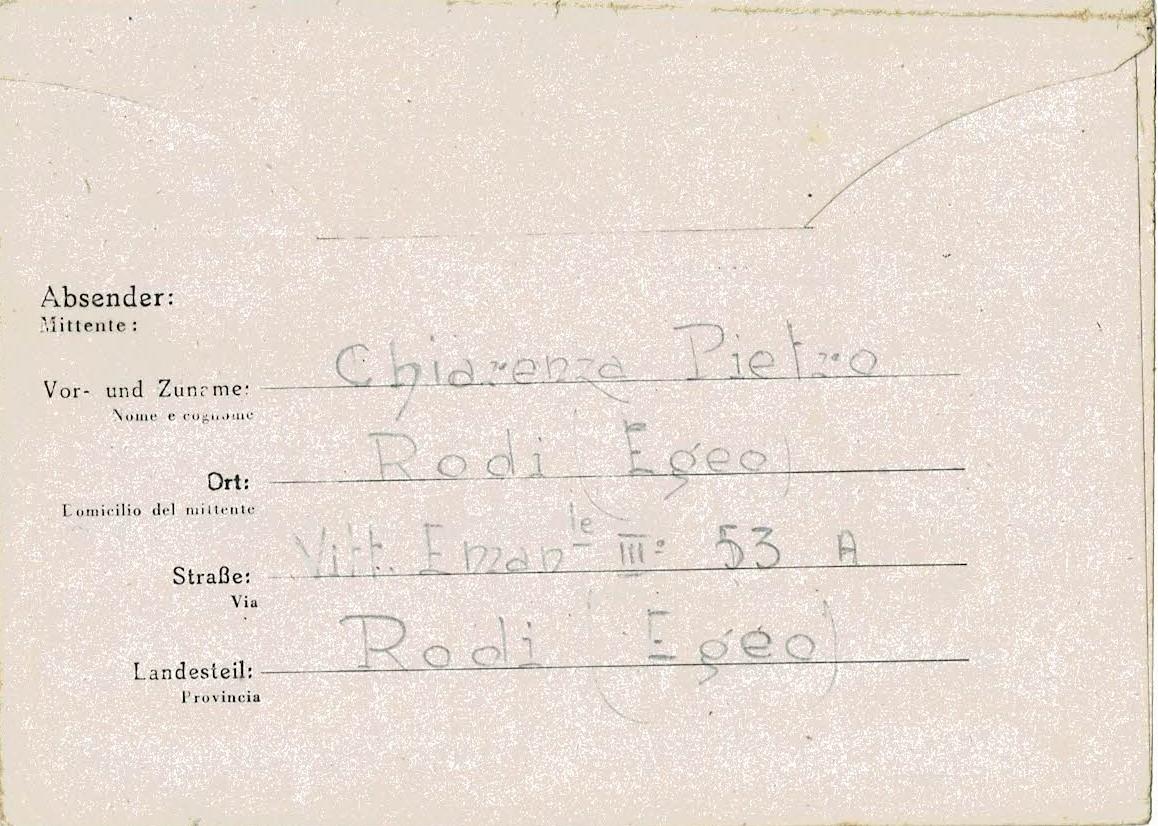 Absender:
Mittente:
Vor- und Zuname: Chiarenza Pietro
Nome e cognome
Ort: Rodi (Egeo)
Domicilio del mittente
Straße: Vitt. Eman.le III° 53 A
Via
Landesteil: Rodi (Egeo)
Provincia